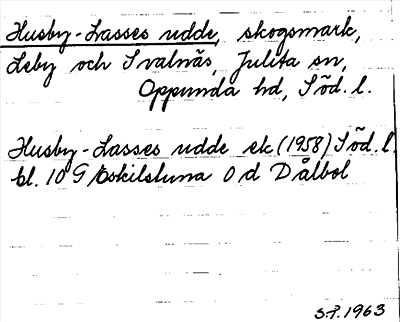 Husby-Lasses udde, skogsmark,
Leby och Svalnäs, Julita sn,
Oppunda hd, Söd. l.
Husby-Lasses udde ek (1958) Söd. l.
bl. 10 G Eskilstuna 0 d Dålbol
S.P. 1963